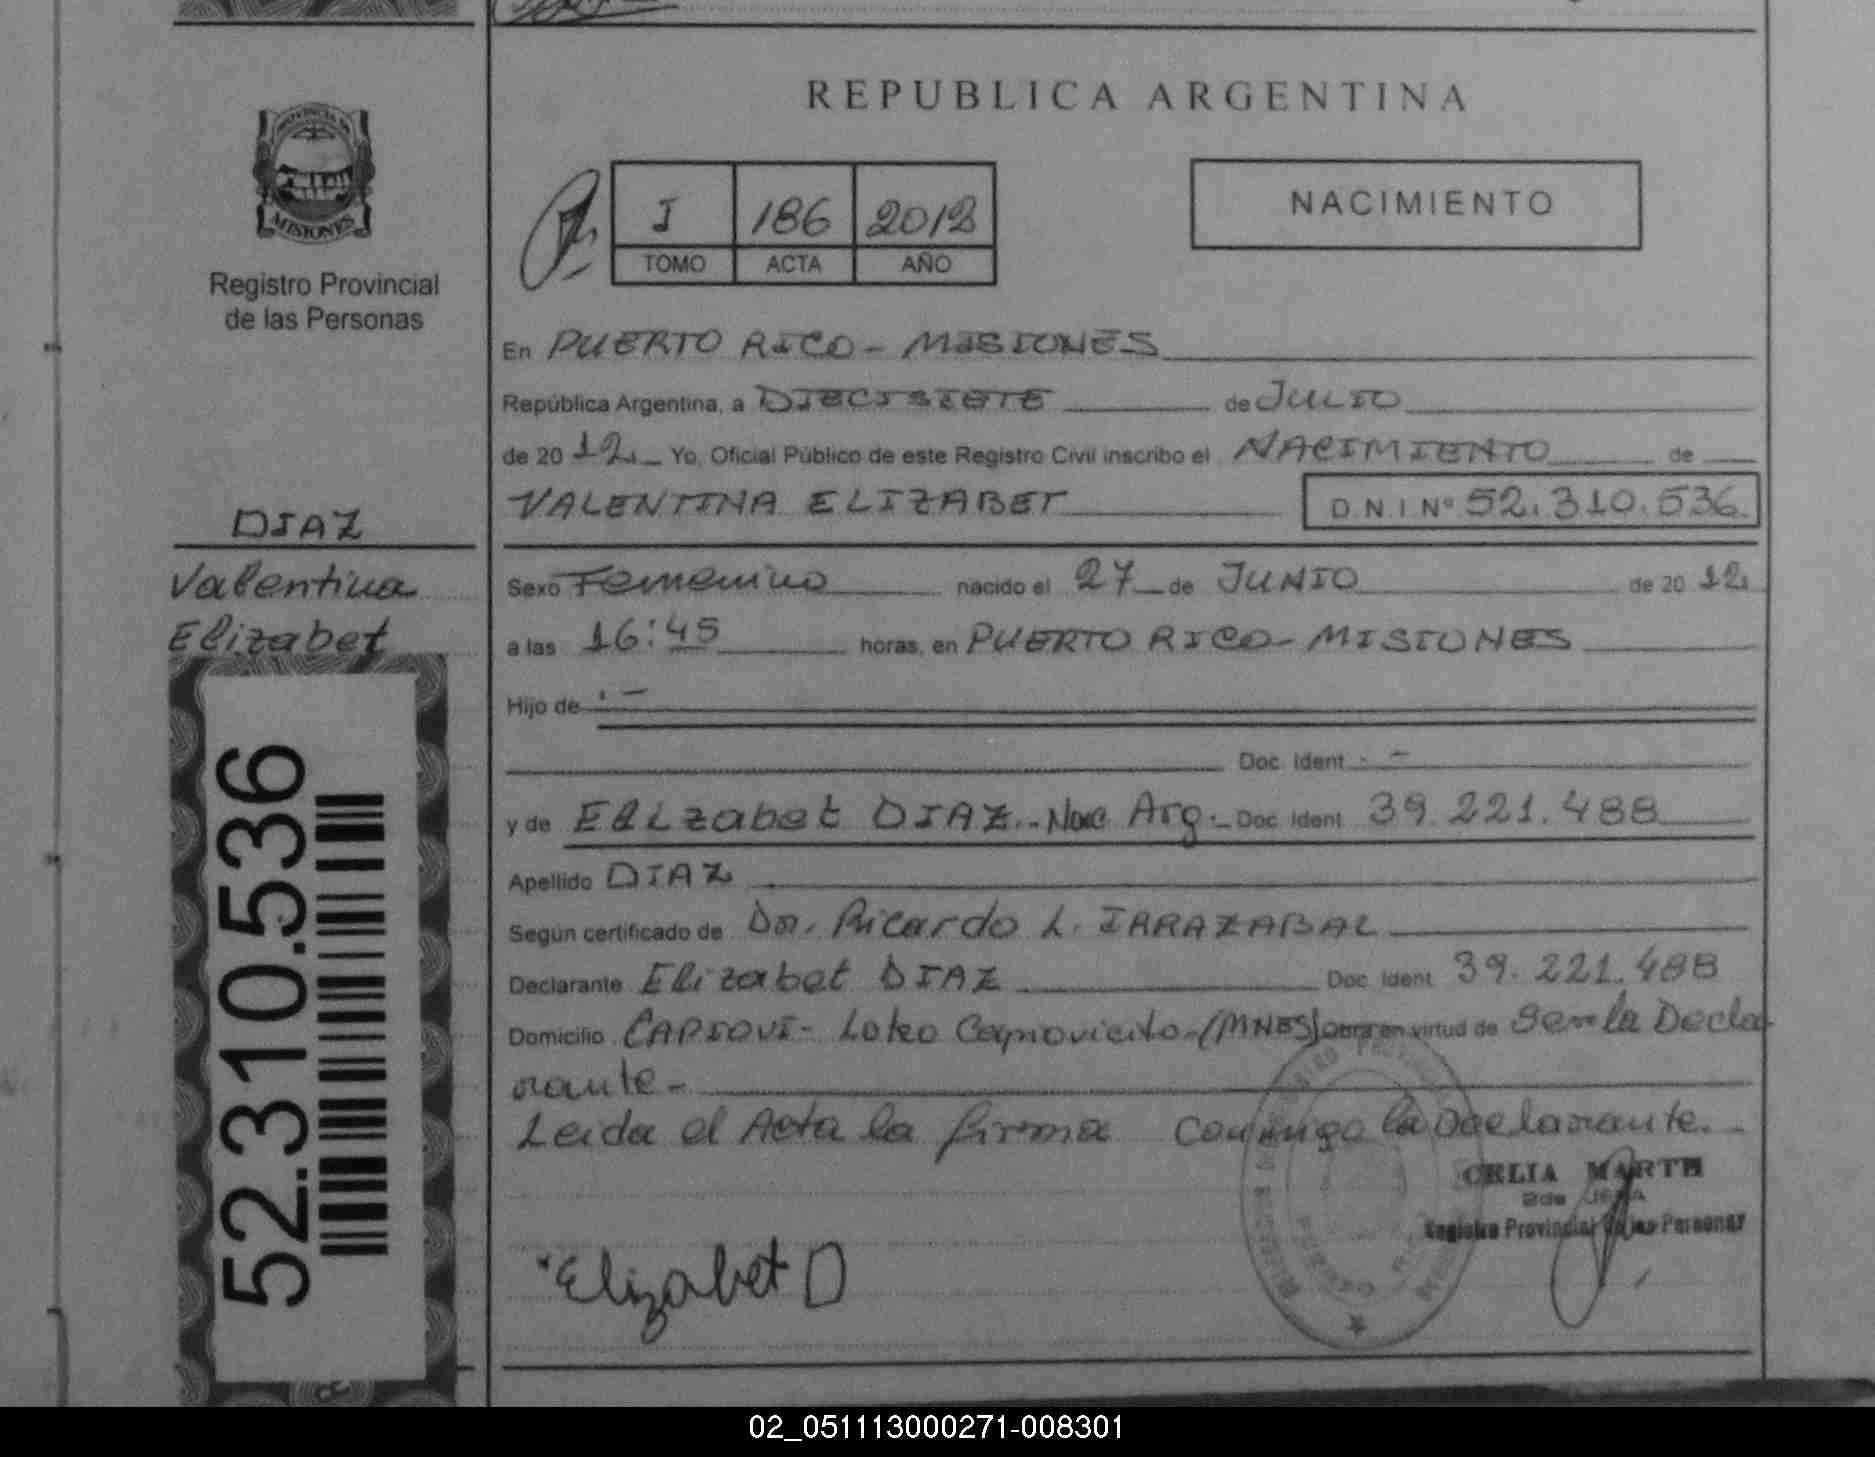 REPUBLICA ARGENTINA
PROVINCIA DE
MISIONES
Registro Provincial
de las Personas
I 186 2012
TOMO ACTA AÑO
NACIMIENTO
En PUERTO RICO - MISIONES
República Argentina, a DIECISIETE de JULIO
de 20 12 Yo, Oficial Público de este Registro Civil inscribo el NACIMIENTO de
VALENTINA ELIZABET D.N.I Nº 52.310.536
DIAZ
Valentina
Elizabet
Sexo Femenino nacido el 27 de JUNIO de 20 12
a las 16:45 horas, en PUERTO RICO - MISIONES
Hijo de . -
Doc. Ident . -
y de Elizabet DIAZ.- Nac. Arg.- Doc. Ident 39.221.488
Apellido DIAZ
Según certificado de Dr. Ricardo L. IRRAZABAL
Declarante Elizabet DIAZ Doc. Ident. 39.221.488
Domicilio CAPIOVI - Loteo Capiovicito - (MNES) Obra en virtud de Ser la Decla-
rante -
Leida el Acta la firma conmigo la Declarante.-
CELIA MARTH
2da JEFA
Registro Provincial de las Personas
Elizabet D
52.310.536
02_051113000271-008301